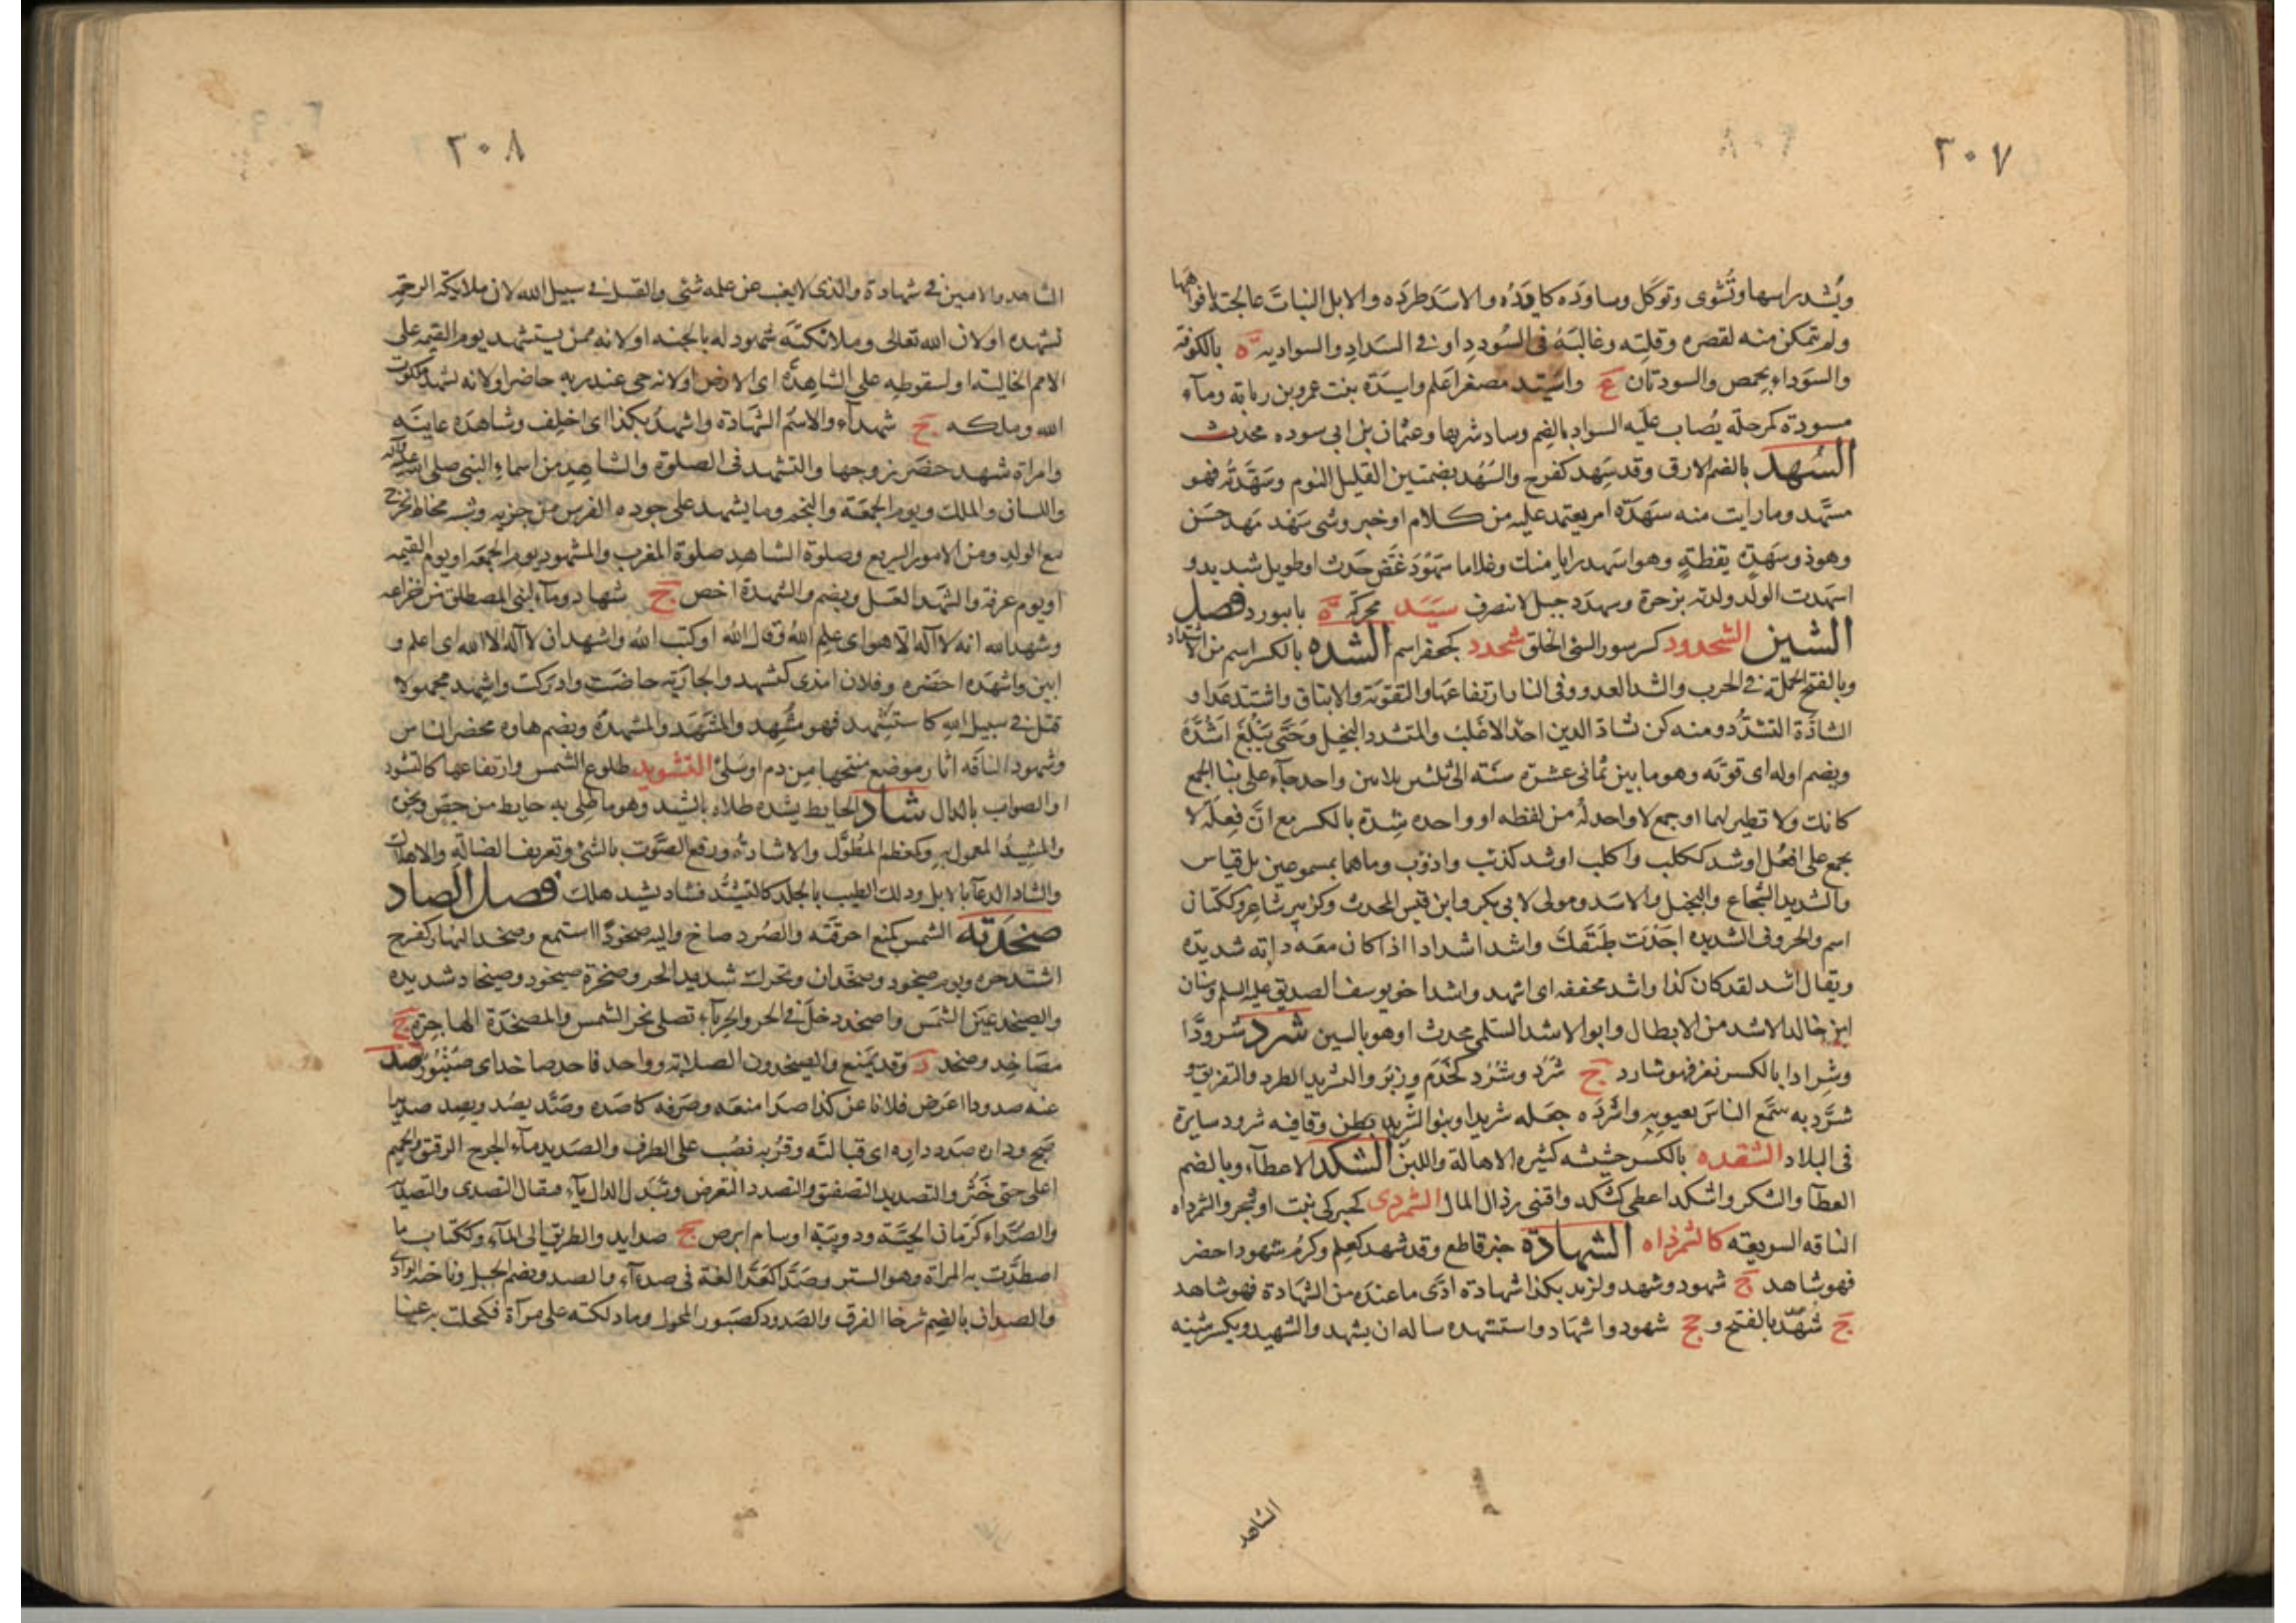 ٢٠٧
ويشد راسها وتشوى وتوكل وساوده كايده والاسد طرده والابل النبات عالجته بافواهها
ولم تتمكن منه لقصره وقلته وغالبه فى السودد او فى السواد والسوادية ة بالكوفة
والسوداء بحمص والسودتان ع واسيد مصغرا علم واسيدة بنت عمرو بن ربابة وماء
مسودة كمرحلة يصاب عليه السواد بالضم وساد شربها وعثمان بن ابى سوده محدث
السهد بالضم الارق وقد سهد كفرح والسهد بضمتين القليل النوم وسهدته فهو
مسهد وما رايت منه سهدة امر يعتمد عليه من كلام او خبر وشى سهد مهد حسن
وهو ذو سهدة يقظة وهو اسهد رايا منك وغلاما سهود غض حدث او طويل شديد و
اسهدت الولد ولدته بزحرة وسهدد جبل لا ينصرف سيد محركة ة بابيورد فصل
الشين الشحدود كسرسور السئ الخلق شحدد كجعفر اسم الشده بالكسر اسم من الاشتداد
وبالفتح الحملة فى الحرب والشد العدو وفى النار ارتفاعها والتقوية والايثاق واشتد عدا و
الشادة التشدد ومنه لن يشاد الدين احد الا غلبه والمتشدد البخيل وحتى يبلغ اشده
ويضم اوله اى قوته وهو ما بين ثمانى عشرة سنه الى ثلثين واحد جاء على بنا الجمع
كانك ولا نظير لهما او جمع لا واحد له من لفظه او واحده شدة بالكسر مع ان فعلة لا
تجمع على افعل او شد ككلب واكلب او شد كذئب واذؤب وما هما بمسموعين بل قياس
والشديد الشجاع والبخيل والاسد ومولى لابى بكر وابن قيس المحدث وكزبير شاعر وككتان
اسم والحروف الشديده اجدت طبقك واشد اشدادا اذا كان معه دابة شديدة
ويقال اشد لقد كان كذا واشد مخففه اى اشهد واشد اخو يوسف الصديق عليه السلم وسنان
ابن خالد الاشد من الابطال وابو الاشد السلمى محدث او هو بالسين شرد شرودا
وشرادا بالكسر نفر فهو شارد ج شرد وشرد كخدم وزبر والشريد الطرد والتفريق و
شرد به سمع الناس بعيوبه واشرده جعله شريدا وبنو الشريد بطن وقافيه شرود سايرة
فى البلاد الشقده بالكسر حشيشه كثيره الاهالة واللبن الشكد الاعطاء وبالضم
العطا والشكر واشكد اعطى كشكد واقتنى رذال المال الشمردى كحبركى نبت او شجر والشمرداه
الناقه السريعه كالشمرذاه الشهادة خبر قاطع وقد شهد كعلم وكرم شهودا حضر
فهو شاهد ج شهود وشهد ولزيد بكذا شهادة ادى ما عنده من الشهادة فهو شاهد
ج شهد بالفتح و جج شهود واشهاد واستشهده ساله ان يشهد والشهيد ويكسر شينه
الشاهد
٢٠٨
الشاهد والامين فى شهادة والذى لا يغيب عن علمه شئ والقتيل فى سبيل الله لان ملائكة الرحمة
تشهده او لان الله تعالى وملائكته شهود له بالجنه او لانه ممن يستشهد يوم القيمه على
الامم الخالية او لسقوطه على الشاهدة اى الارض او لانه حى عند ربه حاضر او لانه يشهد ملكوت
الله وملكه ج شهداء والاسم الشهادة واشهد بكذا اى احلف وشاهده عاينه
وامراة مشهد حضر زوجها والتشهد فى الصلوة والشاهد من اسماء النبى صلى الله عليه وآله
واللسان والملك ويوم الجمعة والنجم وما يشهد على جوده الفرس من جريه وشبه مخاط يخرج
مع الولد ومن الامور السريع وصلوة الشاهد صلوة المغرب والمشهود يوم الجمعه او يوم القيمه
او يوم عرفة والشهد العسل ويضم والشهدة اخص ج شهاد وماء لبنى المصطلق من خزاعه
وشهد الله انه لا اله الا هو اى علم الله وقال الله او كتب الله واشهد ان لا اله الا الله اى اعلم و
ابين واشهده احضره وفلان امذى كشهد والجارية حاضت وادركت واشهد مجهولا
قتل فى سبيل الله كاستشهد فهو مشهد والمشهد والمشهدة وبضم هاوه محضر الناس
وشهود الناقه اثار موضع منتجها من دم او سلى التشويد طلوع الشمس وارتفاعها كالتشود
او الصواب بالذال شاد الحايط يشيده طلاه بالشيد وهو ما طلى به حايط من جص ونحوه
والمشيد المعمول به وكمعظم المطول والاشادة ورفع الصوت بالشئ وتعريف الضالة والاهلاك
والشاد الدعاء بالابل ودلك الطيب بالجلد كالتشيد فشاد يشيد هلك فصل الصاد
صخدته الشمس كمنع احرقته والصرد صاخ واليه صخودا استمع وصخد النهار كفرح
اشتد حره ويوم صيخود وصخدان ويحرك شديد الحر وصخرة صيخود وصيخاد شديده
والصيخد عين الشمس واصخد دخل فى الحر والحرباء تصلى بحر الشمس والمصخدة الهاجرة ج
مصاخد وصخد د وقد يمنع والصيخدون الصلابة وواحد قاحد صاخد اى صنبور صد
عنه صدودا اعرض وفلانا عن كذا صدا منعه وصرفه كاصده وصد يصد ويصد صديدا
ضج وداره صدد داره اى قبالته وقربه نصب على الظرف والصديد ماء الجرح الرقيق والحميم
اغلى حتى خثر والتصديد التصفيق والتصدد التعرض وتبدل الدال ياء فيقال التصدى والتصدية
والصداد كرمان الحية ودويبة او سام ابرص ج صدايد والطريق الى الماء وككتاب ما
اصطدت به المراة وهو الستر وصداء كعداء لغة فى صداء والصد ويضم الجبل وناحية الوادى
والصدان بالضم شرخا الفرق والصدود كصبور المجول وما دلكته على مرآة فكحلت به عينا